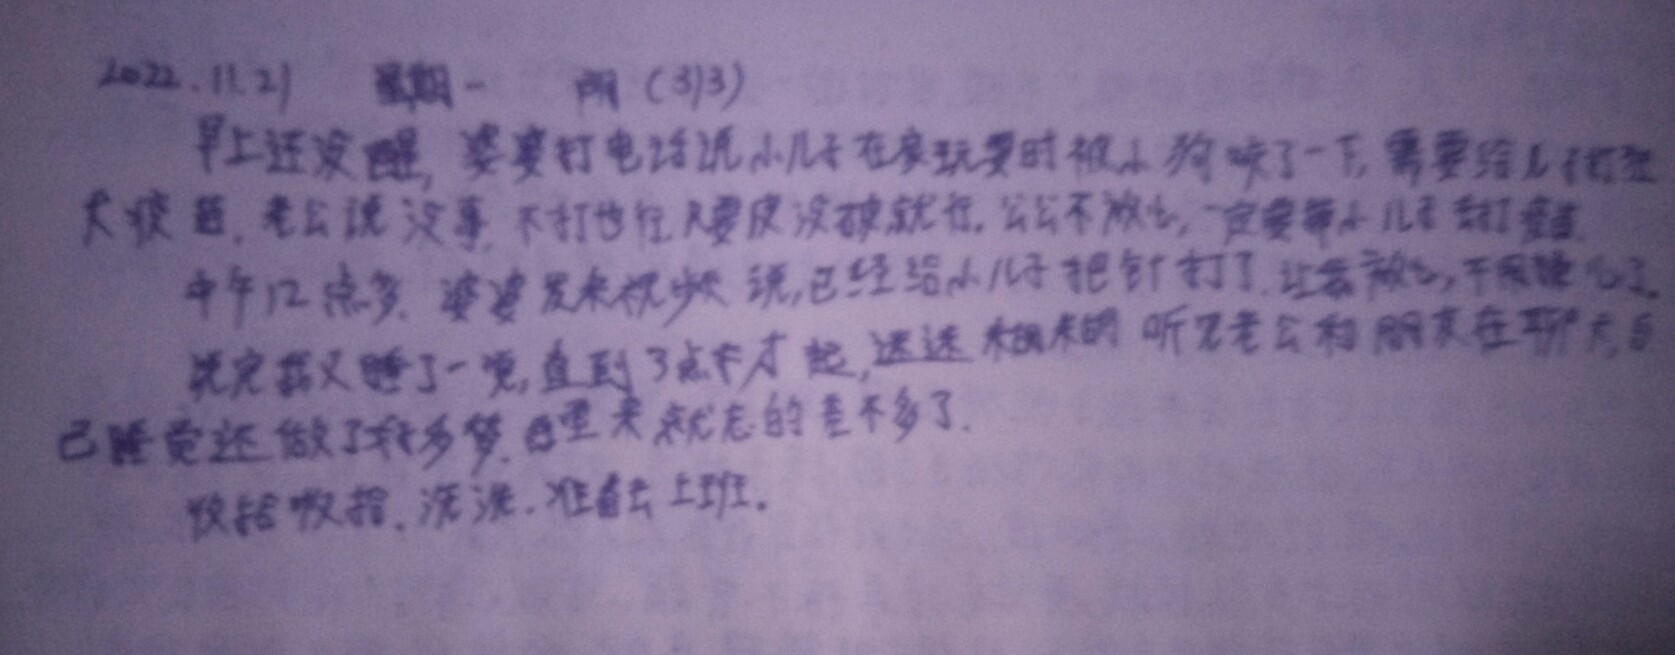 2022.11.21 星期一 阴 (313)
早上还没醒,婆婆打电话说小儿子在家玩耍时被小狗咬了一下,需要给儿子打狂
犬疫苗.老公说没事,不打也行只要皮没破就行.公公不放心,一定要带小儿子去打疫苗.
中午12点多.婆婆发来视频说,已经给小儿子把针打了.让我放心,不用操心了.
说完我又睡了一觉,直到3点半才起,迷迷糊糊的听见老公和朋友在聊天,自
己睡觉还做了很多梦.醒来就忘的差不多了.
收拾收拾.洗洗.准备去上班.